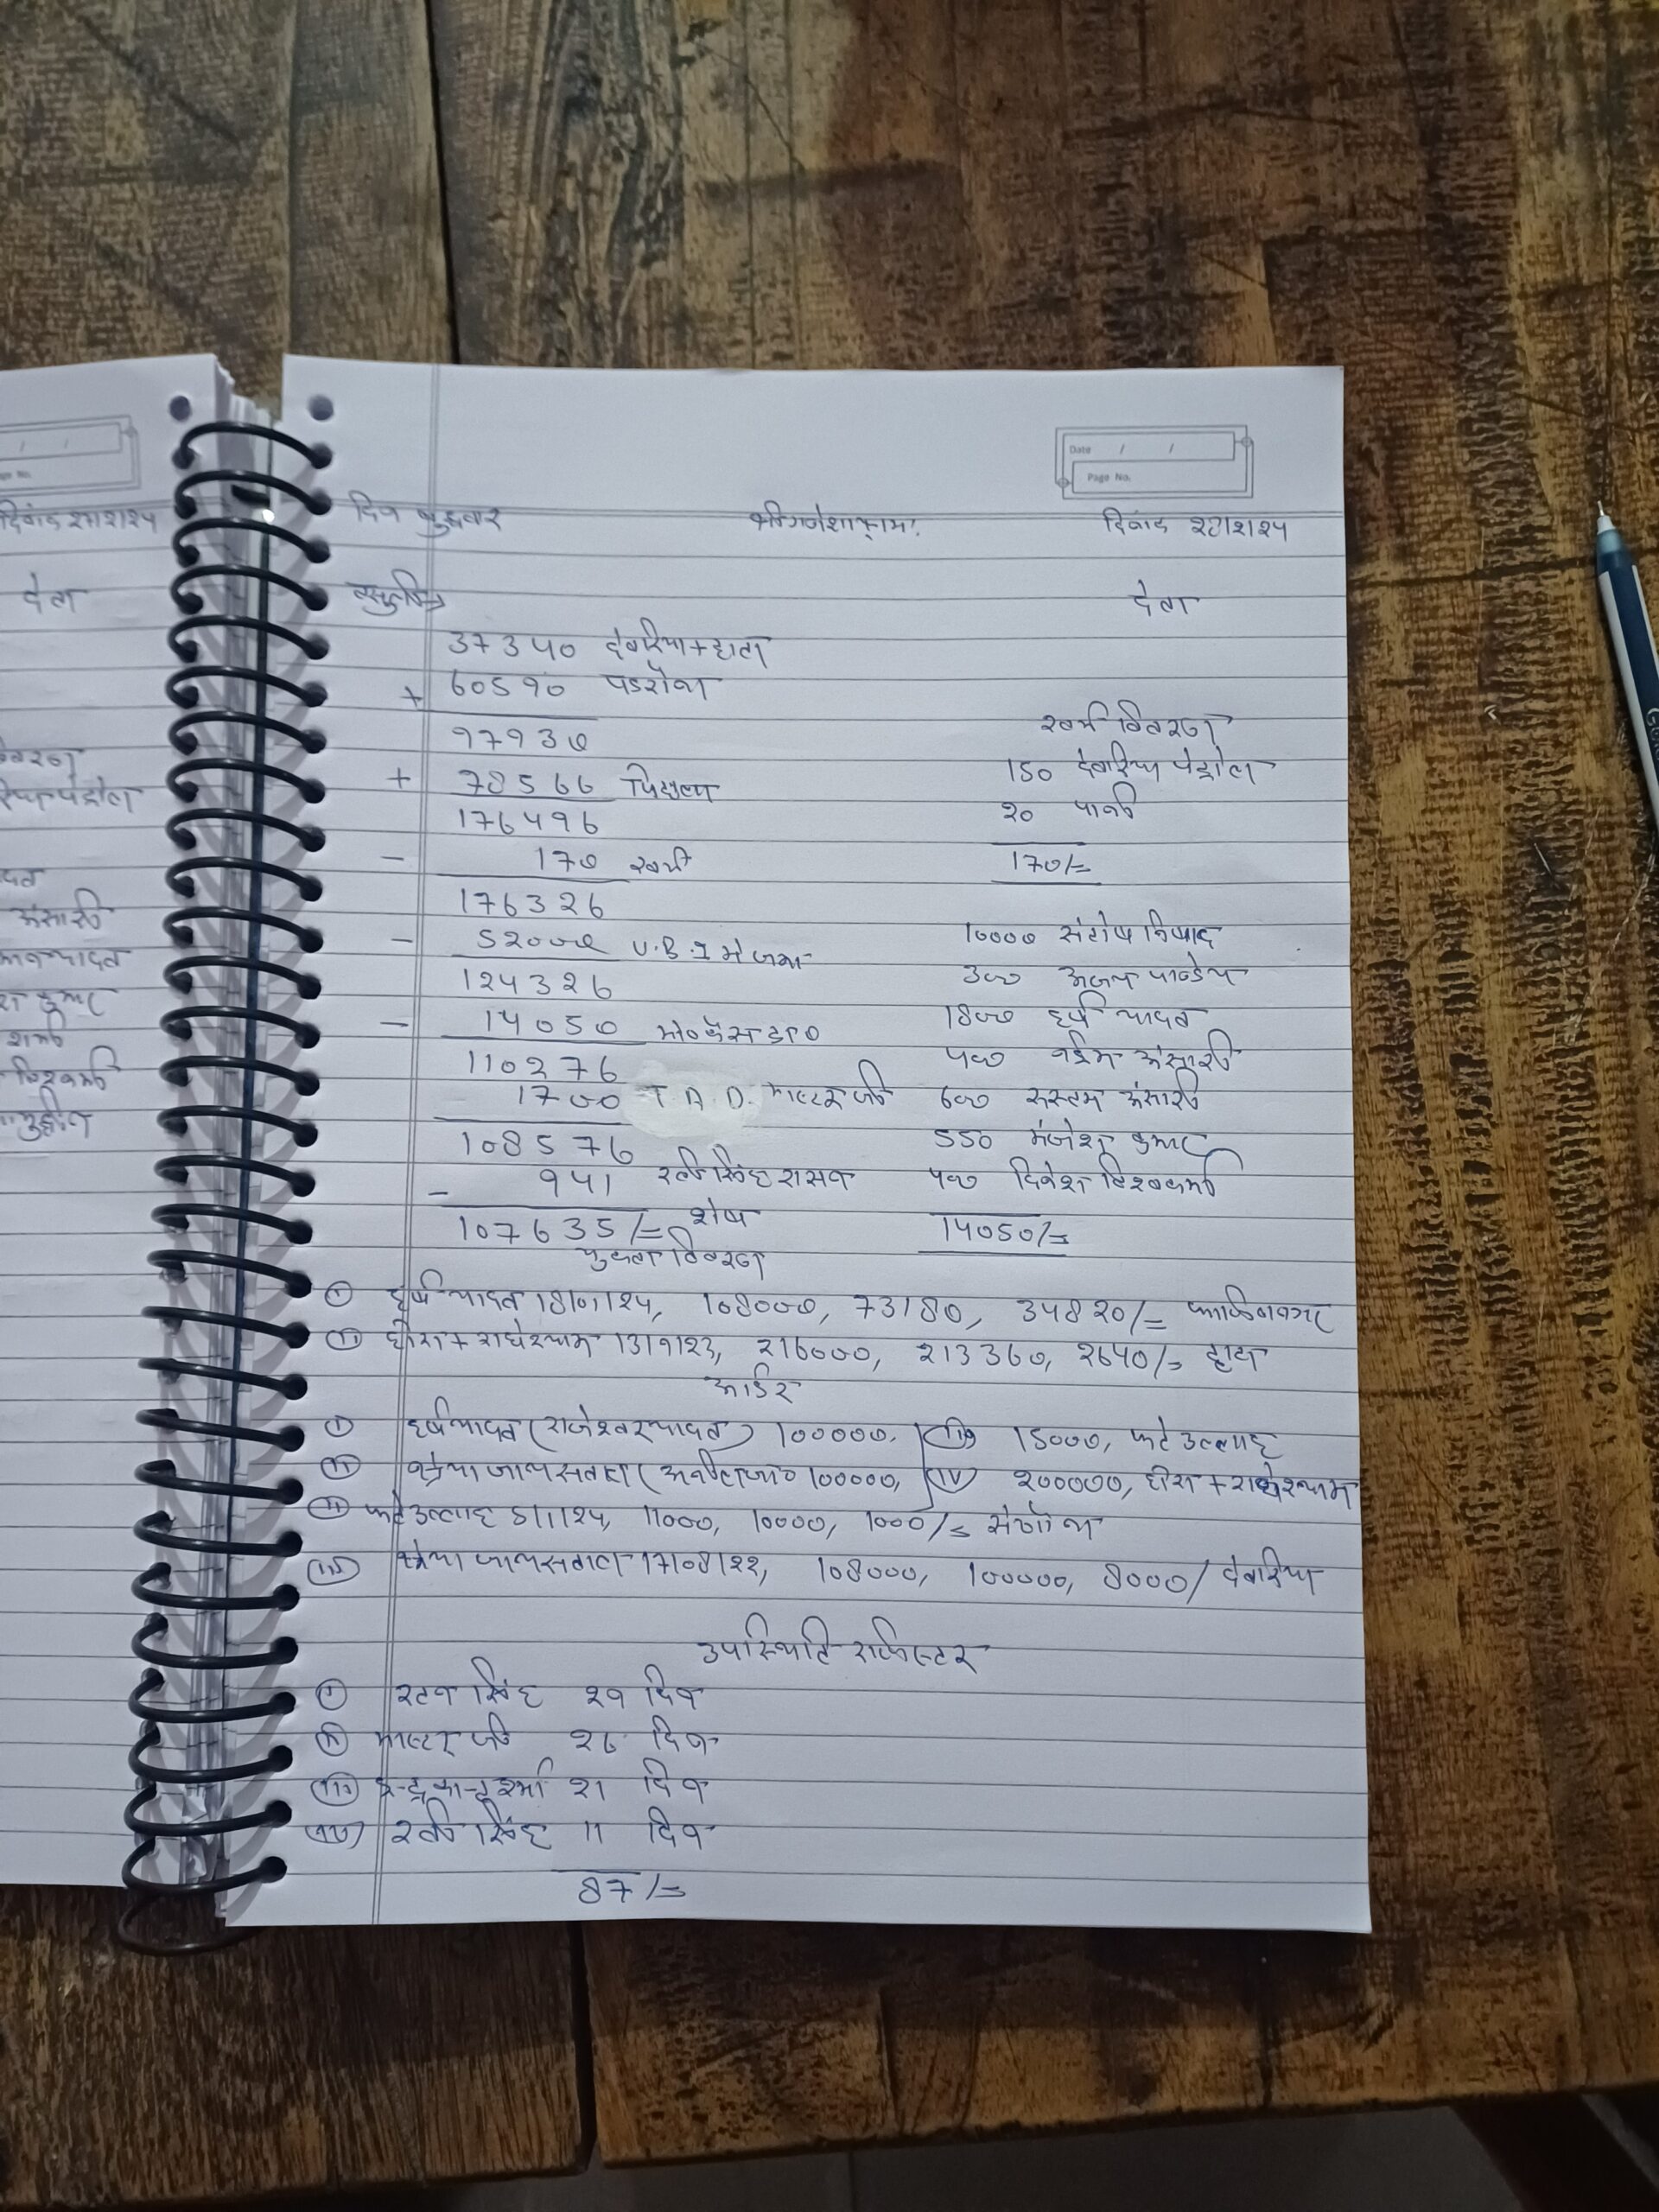 Date / /
Page No.
दिन बुद्धवार श्री गणेशाय नमः दिनांक २८।२।२४
वसुली देना
37340 देवरिया + हाटा
+ 60590 पडरौना
97930
+ 78566 पिछला
176496
- 170 खर्चा
176326
- 52000 U.B.I मे जमा
124326
- 14050
110276
1700 T.A.D. मास्टर जी
108576
- 941 रवी सिंह रासन
107635/= शेष
खर्च विवरण
150 देवरिया पेट्रोल
२० पानी
170/=
10000 संतोष निषाद
300 अजय पाण्डेय
1800 हर्ष यादव
400 नईम अंसारी
600 रुस्तम अंसारी
550 मंजेश कुमार
400 दिनेश विश्वकर्मा
14050/=
चुकता विवरण
(i) हर्ष यादव 18/01/24, 108000, 73180, 34820/=
(ii) हीरा + राधेश्याम 13/9/23, 216000, 213360, 2640/= हाटा
आर्डर
(i) हर्ष यादव (राजेश्वर यादव) 100000, (iii) 15000, फटे उल्लाह
(ii) जायसवाल 100000, (iv) 200000, हीरा + राधेश्याम
(iii) फटे उल्लाह 5/1/24, 11000, 10000, 1000/=
(iv) जायसवाल 17/08/22, 108000, 100000, 8000/ देवरिया
उपस्थिति रजिस्टर
(i) रतन सिंह २९ दिन
(ii) मास्टर जी २६ दिन
(iii) २१ दिन
(iv) रवी सिंह 11 दिन
87/=